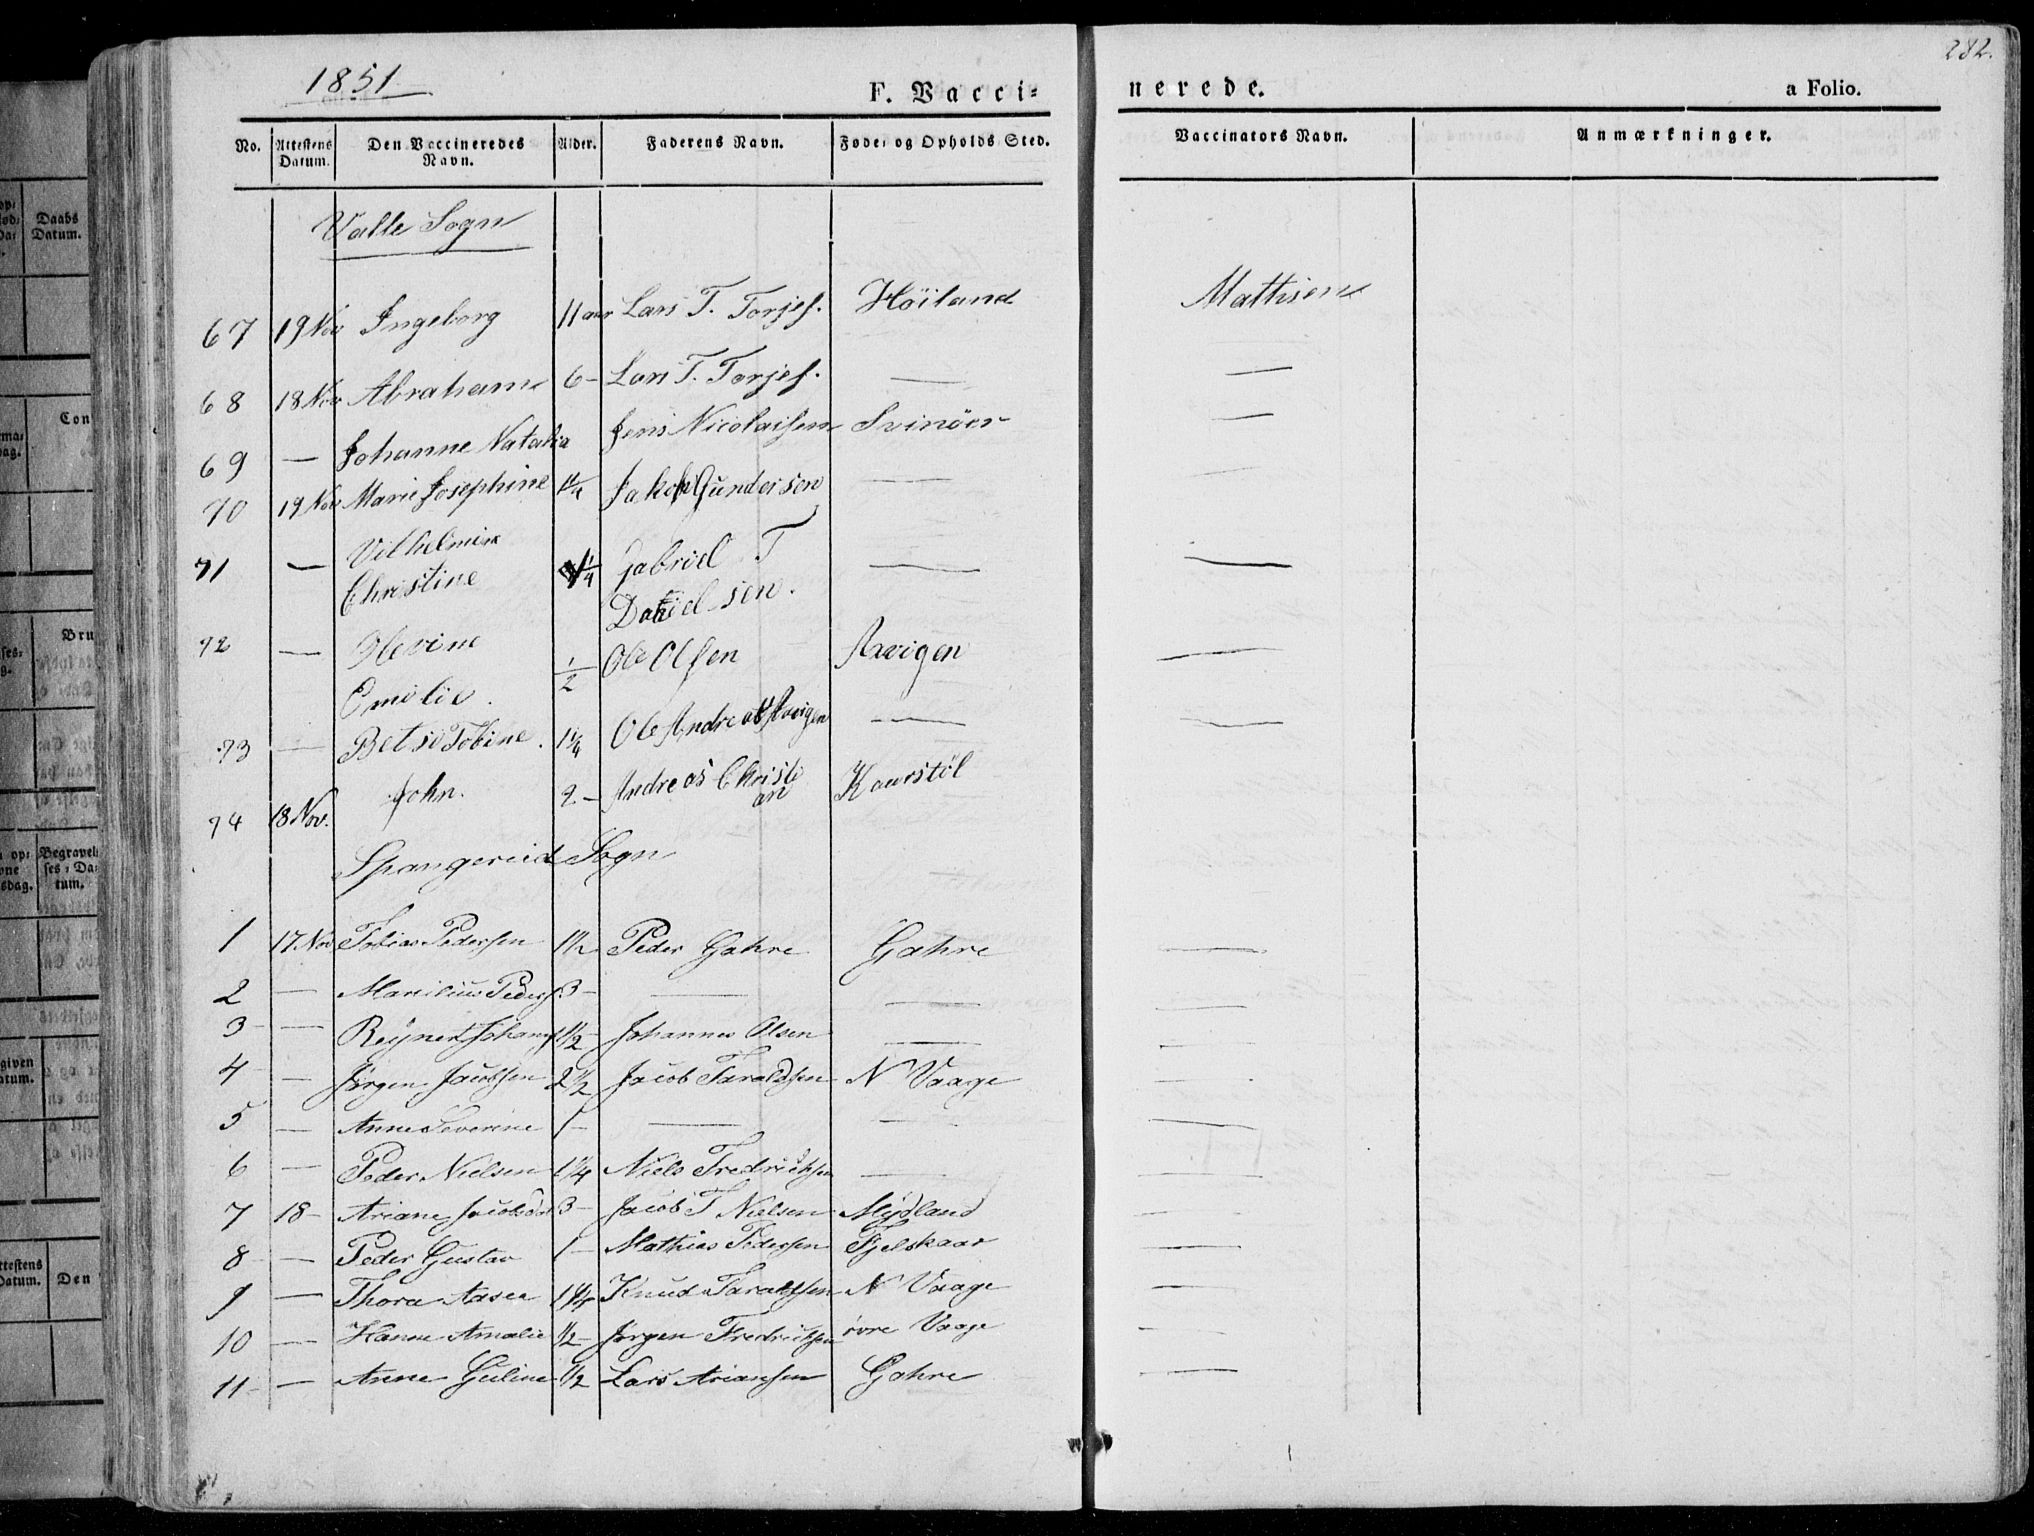 282.
1851
F. Vacci-
nerede.
a Folio.
No. Attestens Datum. Den Vaccineredes Navn. Alder. Faderens Navn. Føde- og Opholds Sted. Vaccinators Navn. Anmærkninger.
Valle Sogn
67 19 Nov Ingeborg 11 aar Lars T. Torjes. Höiland Mathisen
68 18 Nov Abraham 6 – Lars T. Torjes. — —
69 — Johanne Natalia Jens Nicolaisen Svinöer —
70 19 Nov Marie Josephine 1/4 Jakob Gundersen — —
71 — Vilhelmine Christine 1/4 Gabriel T Danielsen. — —
72 — Olevine Emilie. 1/2 Ole Olsen Aavigen —
73 — Betsi Tobine. 1 1/4 Ole Andreas Aavigen — —
74 18 Nov. John. 2 – Andreas Christian Kaurstöl
Spangereid Sogn
1 17 Nov Tobias Pedersen 1 1/2 Peder Gahre Gahre —
2 — Marilius Peders. 3 – — — —
3 — Reynert Johans 1 1/2 Johannes Olsen — —
4 — Jörgen Jacobsen 2 1/2 Jacob Taraldsen N Vaage —
5 — Anne Severine 1 – — — —
6 — Peder Nielsen 1 1/4 Niels Fredricksen — —
7 18 – Ariane Jacobsd 3 – Jacob T Nielsen Mydland —
8 — Peder Gustav 1 – Mathias Pedersen Fjelskaar —
9 — Thora Aasee 1 1/4 Knud Taraldsen N Vaage —
10 — Hanne Amalie 1/2 – Jörgen Fredricksen övre Vaage —
11 — Anne Guline 1/2 Lars Ariansen Gahre —
Daabs Datum.
Con
Bru
Begravelses-Datum.
Den